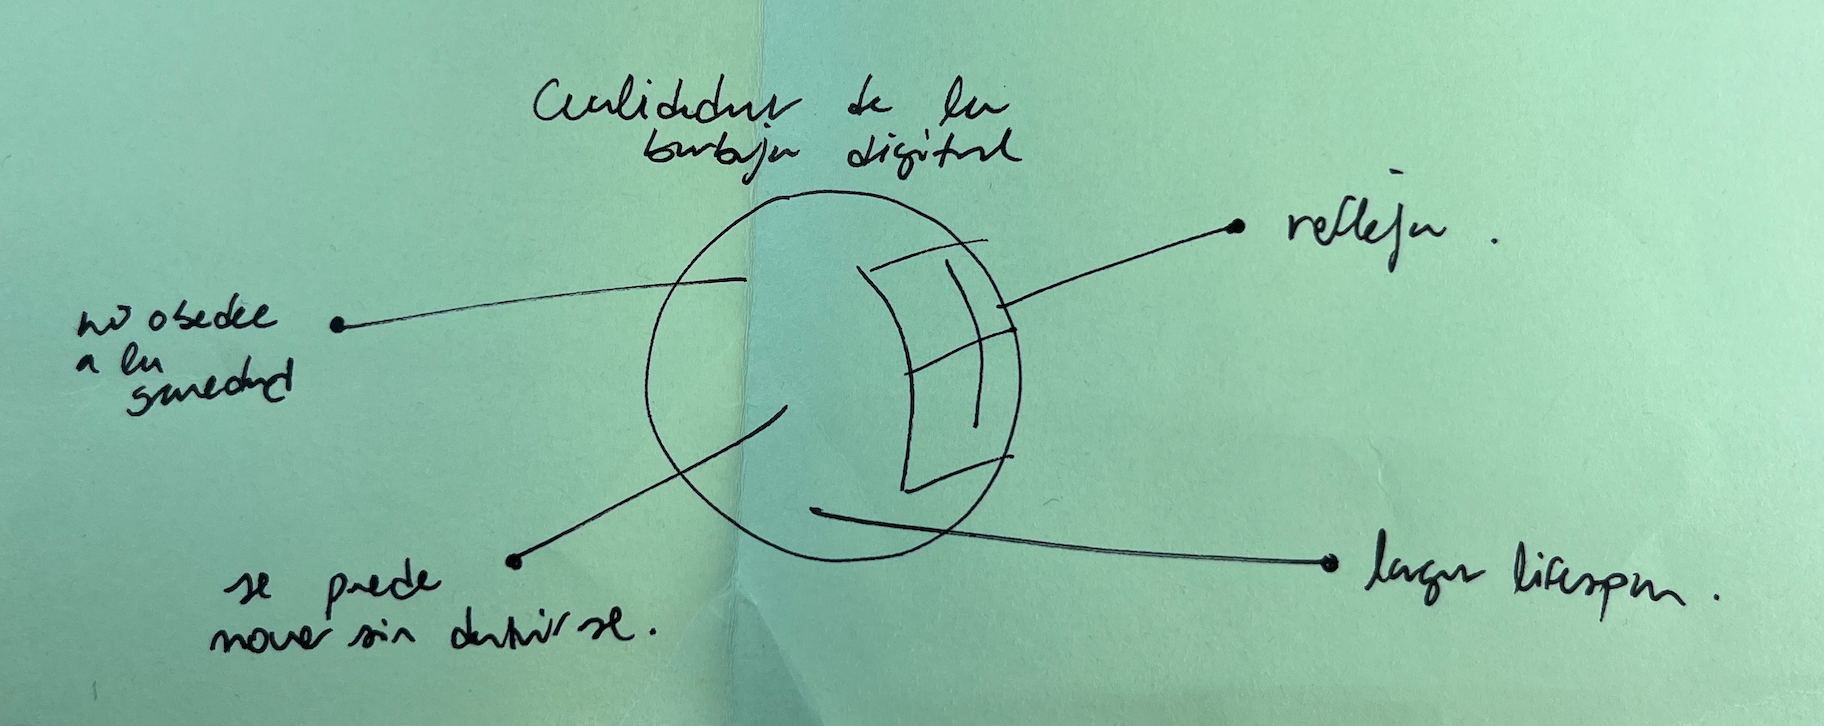 Cualidades de la
burbuja digital
refleja.
no obedece
a la
gravedad
se puede
mover sin destruirse.
larga lifespan.